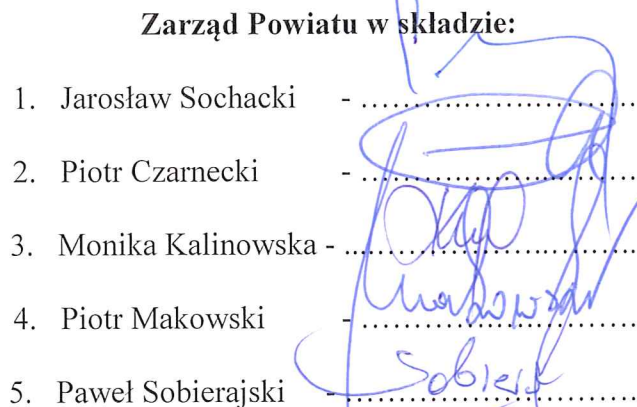 Zarząd Powiatu w składzie:
1. Jarosław Sochacki - ........................................
2. Piotr Czarnecki - ........................................
3. Monika Kalinowska - ........................................
4. Piotr Makowski - ........................................
5. Paweł Sobierajski - ........................................